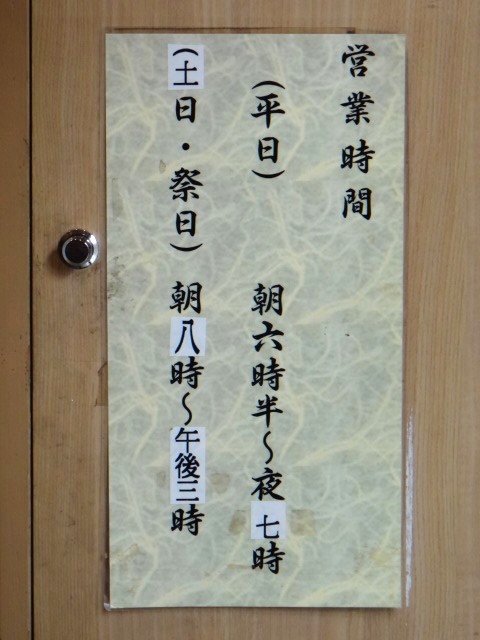 営業時間
（平日）　朝六時半～夜七時
（土日・祭日）　朝八時～午後三時